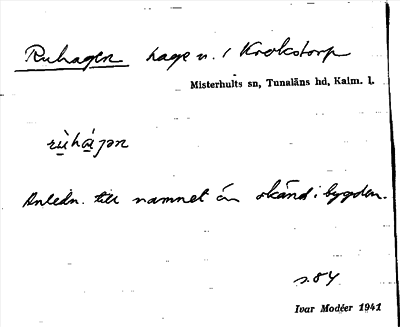 Ruhagen hage u. / Krokstorp
Misterhults sn, Tunaläns hd, Kalm. l.
rù̀hájən
Anledn. till namnet än okänd i bygden.
s. 84
Ivar Modéer 1941